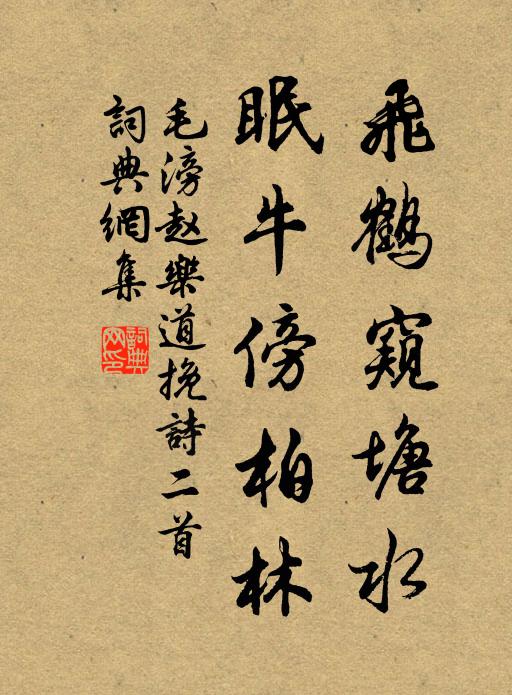 飛鶴窺塘水
眠牛傍柏林
毛滂赵樂道挽詩二首
詞典網集
詞典网印